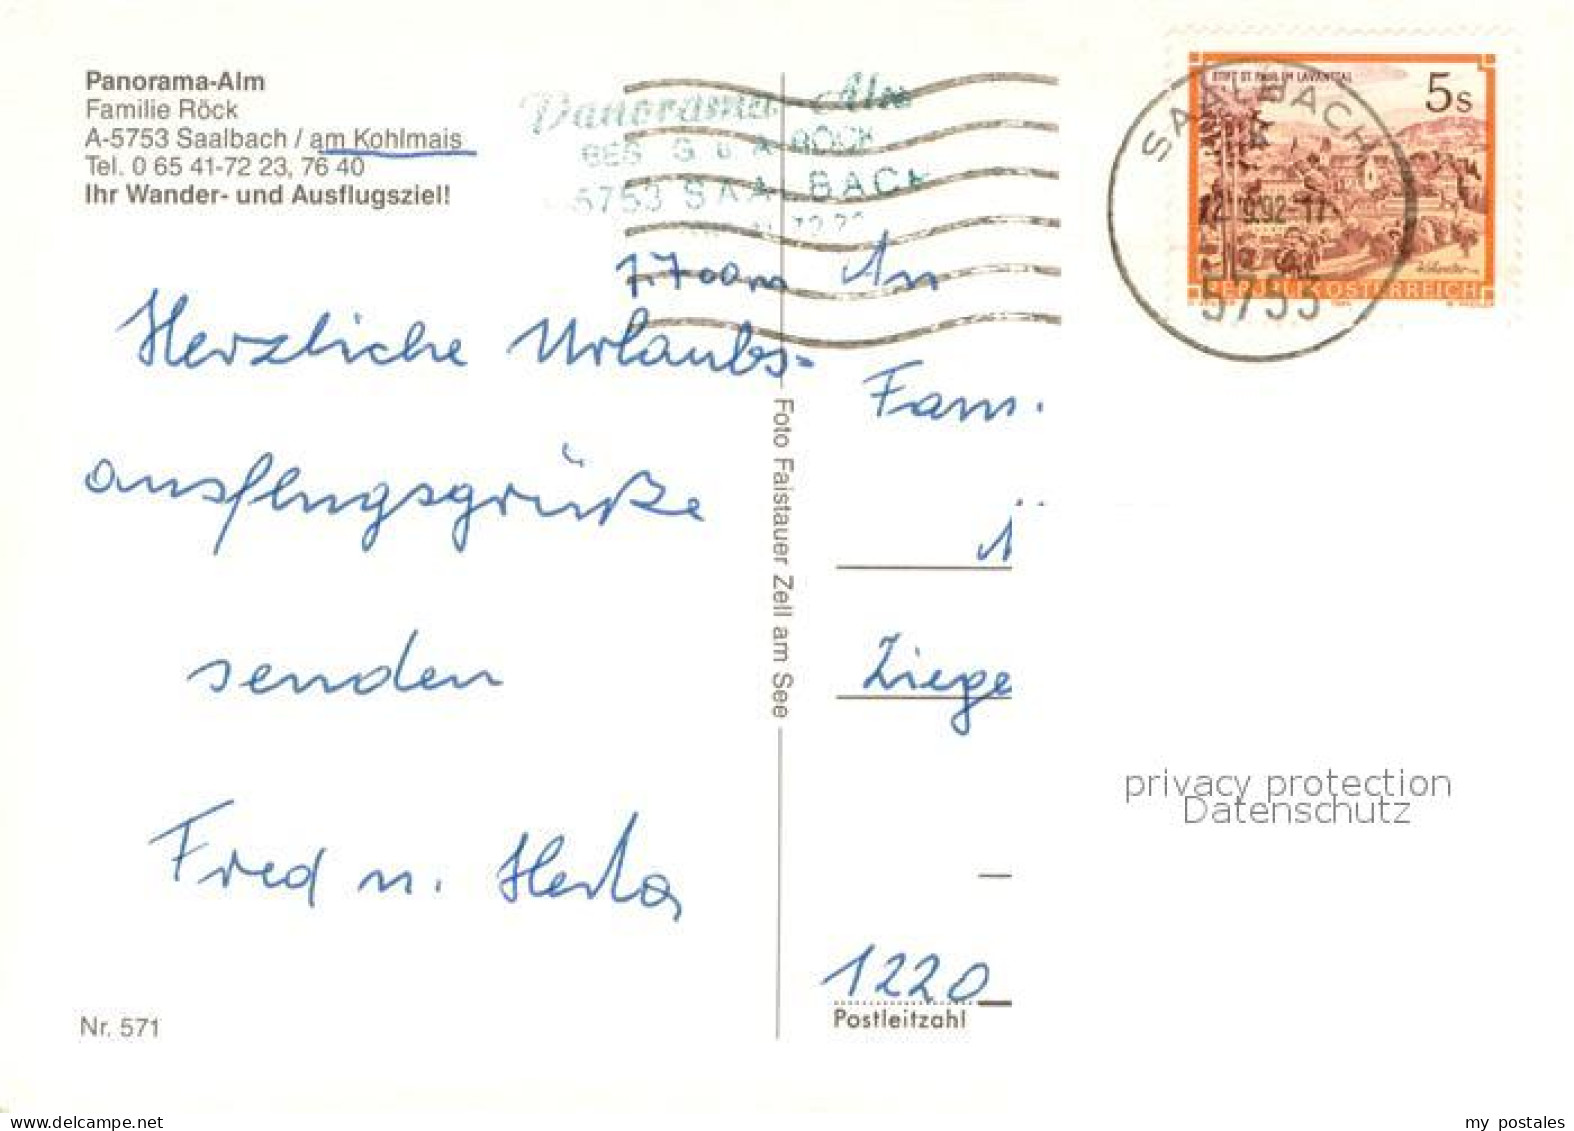 Panorama-Alm
Familie Röck
A-5753 Saalbach / am Kohlmais
Tel. 0 65 41-72 23, 76 40
Ihr Wander- und Ausflugsziel!
Panorama Alm
BES G u A RÖCK
5753 SAALBACH
STIFT ST. PAUL IM LAVANTTAL
5s
REPUBLIK ÖSTERREICH
SAALBACH
9.92-17
5753
1700m
An
Herzliche Urlaubs=
ausflugsgrüße
senden
Fred u. Herta
Fam.
Ziege
1220
Postleitzahl
Foto Faistauer Zell am See
Nr. 571
privacy protection
Datenschutz
www.delcampe.net
my postales